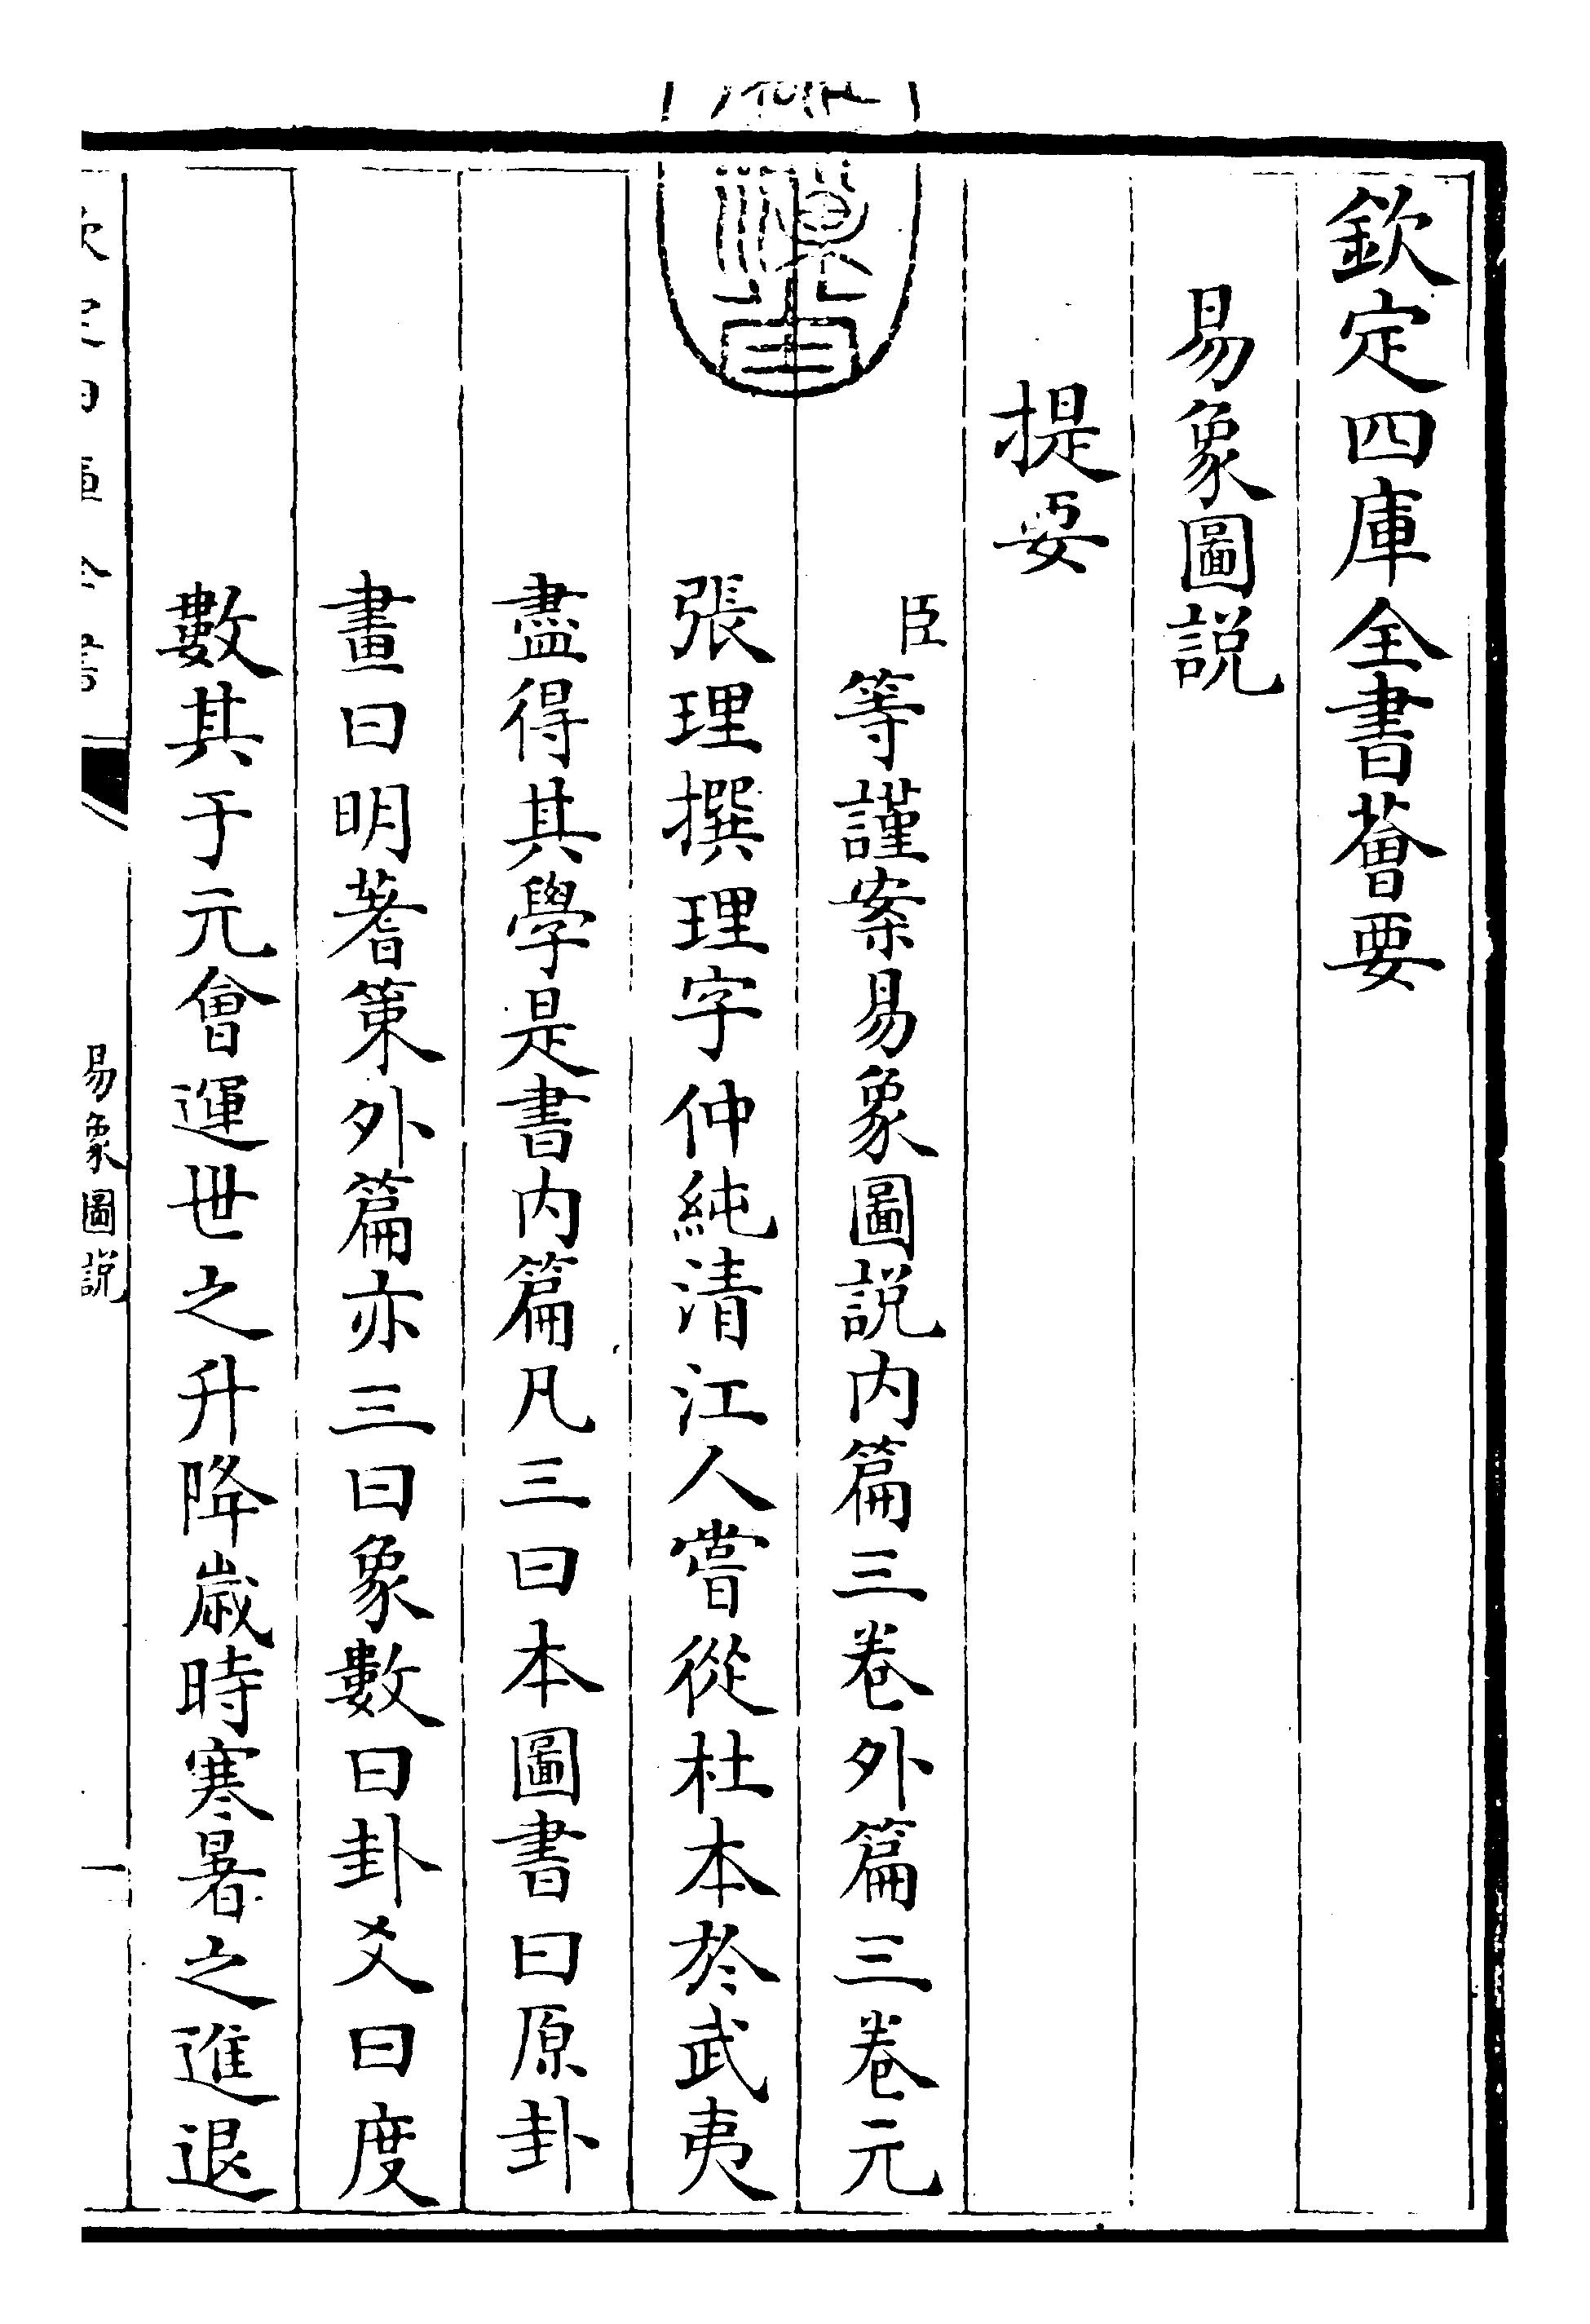 欽定四庫全書薈要
易象圖說
提要
臣等謹案易象圖說内篇三卷外篇三卷元
張理撰理字仲純清江人嘗從杜本於武夷
盡得其學是書内篇凡三曰本圖書曰原卦
畫曰明蓍策外篇亦三曰象數曰卦爻曰度
數其于元會運世之升降歲時寒暑之進退
易象圖說
一